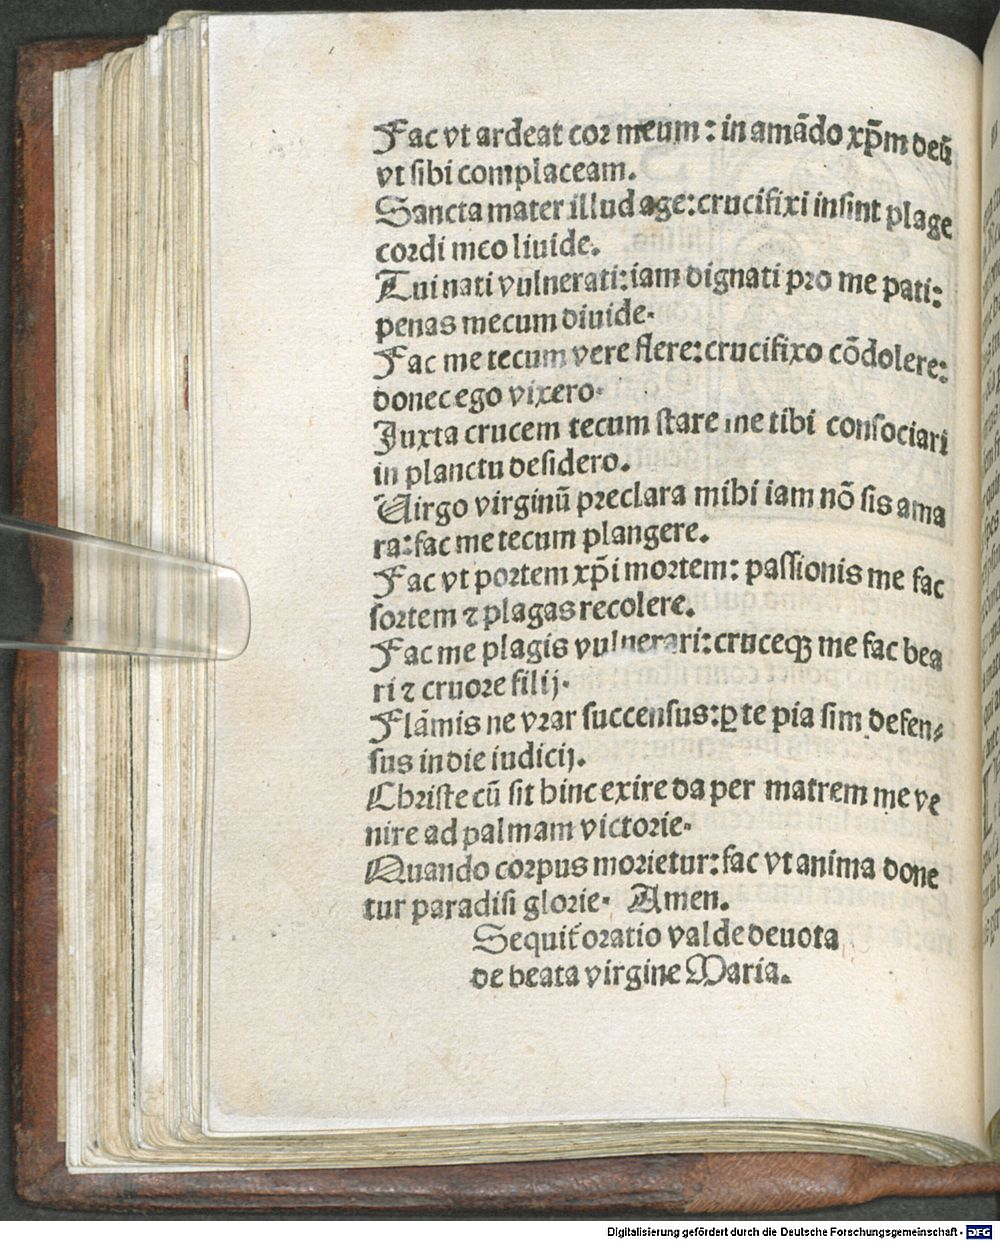 Fac vt ardeat cor meum : in amādo xp̄m deū
vt sibi complaceam.
Sancta mater illud age: crucifixi insint plage
cordi meo liuide.
Tui nati vulnerati: iam dignati pro me pati:
penas mecum diuide.
Fac me tecum vere flere: crucifixo cōdolere:
donec ego vixero.
Juxta crucem tecum stare me tibi consociari
in planctu desidero.
Virgo virginū preclara mihi iam nō sis ama
ra: fac me tecum plangere.
Fac vt portem xp̄i mortem: passionis me fac
sortem ⁊ plagas recolere.
Fac me plagis vulnerari: cruceqꝫ me fac bea
ri ⁊ cruore filij.
Flāmis ne vrar succensus: ꝑ te pia sim defen⸗
sus in die iudicij.
Christe cū sit hinc exire da per matrem me ve
nire ad palmam victorie.
Quando corpus morietur: fac vt anima done
tur paradisi glorie. Amen.
Sequit᷑ oratio valde deuota
de beata virgine Maria.
Digitalisierung gefördert durch die Deutsche Forschungsgemeinschaft - DFG